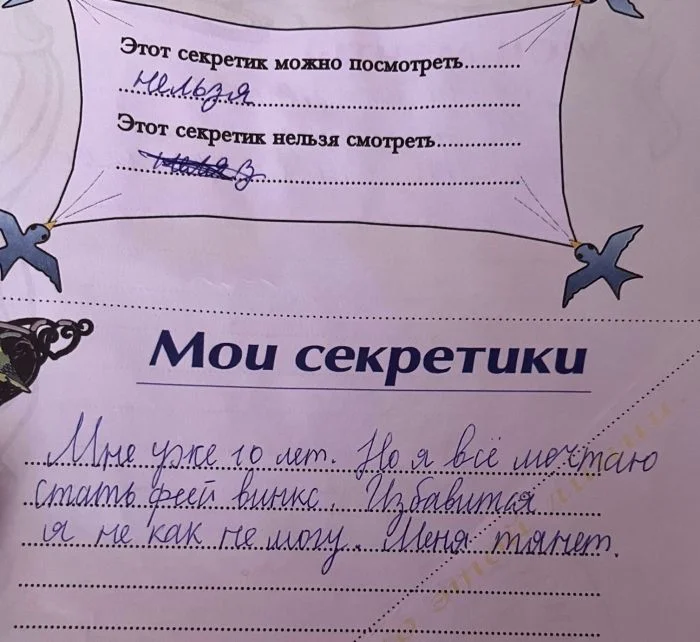 Этот секретик можно посмотреть..........
нельзя
Этот секретик нельзя смотреть..............
Мои секретики
Мне уже 10 лет. Но я всё мечтаю
стать феей винкс. Избавится
я не как не могу. Меня тянет.